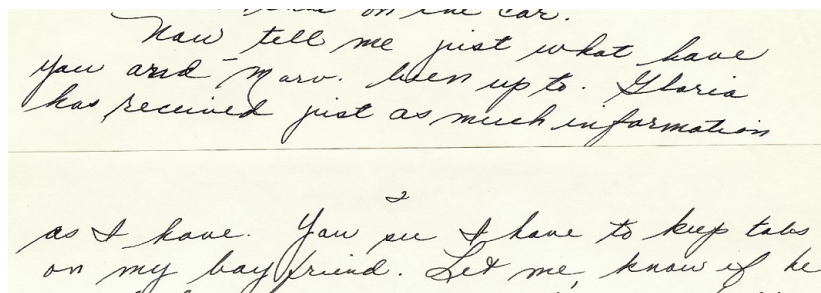 on the car.
Now tell me just what have
you and Marv. been up to. Gloria
has received just as much information
2
as I have. You see I have to keep tabs
on my boy friend. Let me, know if he